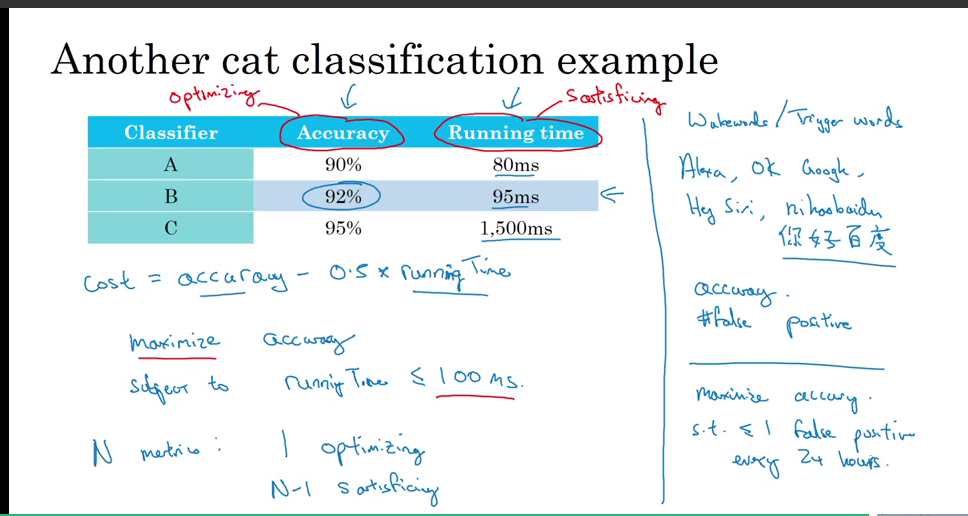 Another cat classification example
optimizing
Satisficing
Classifier Accuracy Running time
A 90% 80ms
B 92% 95ms
C 95% 1,500ms
cost = accuracy - 0.5 x running Time
maximize accuracy
subject to running Time ≤ 100 ms.
N metrics : 1 optimizing
N-1 satisficing
Wakewords / Trigger words
Alexa, OK Google,
Hey Siri, nihaobaidu
你好百度
accuracy.
#false positive
maximize accuracy.
s.t. ≤ 1 false positive
every 24 hours.